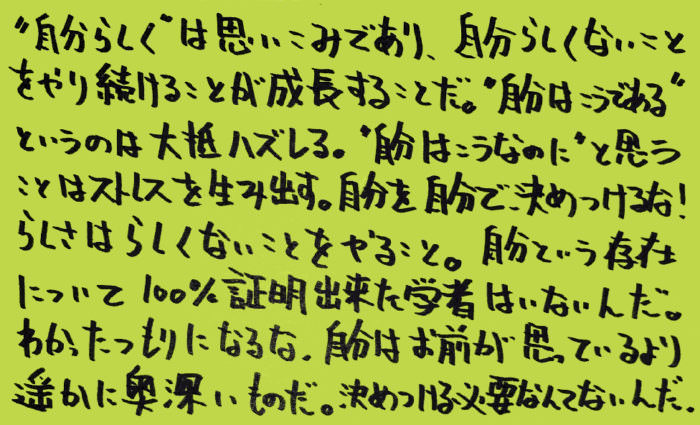 "自分らしく"は思いこみであり、自分らしくないこと
をやり続けることが成長することだ。"自分はこうである"
というのは大抵ハズレる。"自分はこうなのに"と思う
ことはストレスを生み出す。自分を自分で決めつけるな!
らしさはらしくないことをやること。自分という存在
について100%証明出来た学者はいないんだ。
わかったつもりになるな、自分はお前が思っているより
遥かに奥深いものだ。決めつける必要なんてないんだ、